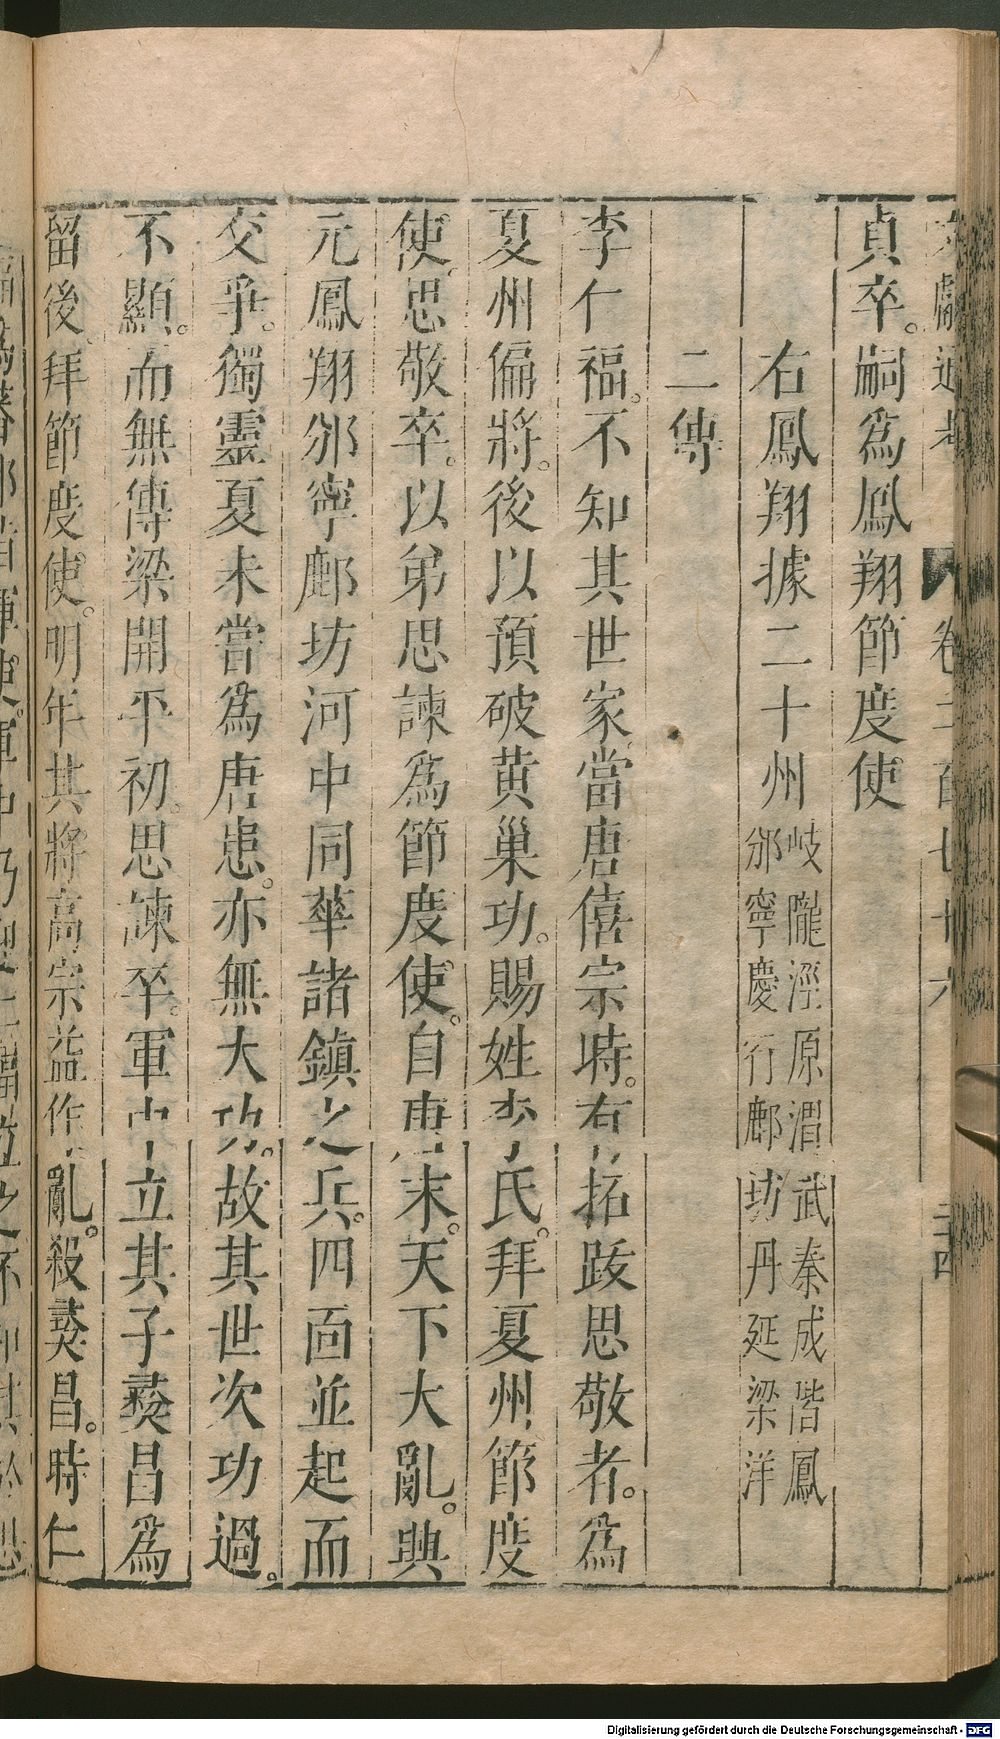 貞卒。嗣爲鳳翔節度使
右鳳翔據二十州岐隴涇原渭武秦成階鳳
邠寧慶衍鄜坊丹延梁洋
二傳
李仁福。不知其世家當唐僖宗時。有拓跋思敬者。爲
夏州偏將。後以預破黄巢功。賜姓李氏。拜夏州節度
使。思敬卒。以弟思諫爲節度使。自唐末。天下大亂。興
元鳳翔邠寧鄜坊河中同華諸鎮之兵。四面並起而
交爭。獨靈夏未嘗爲唐患。亦無大功。故其世次功過。
不顯。而無傳梁開平初。思諫卒。軍中立其子彝昌爲
留後。拜節度使。明年其將高宗益作亂。殺彝昌。時仁
Digitalisierung gefördert durch die Deutsche Forschungsgemeinschaft - DFG